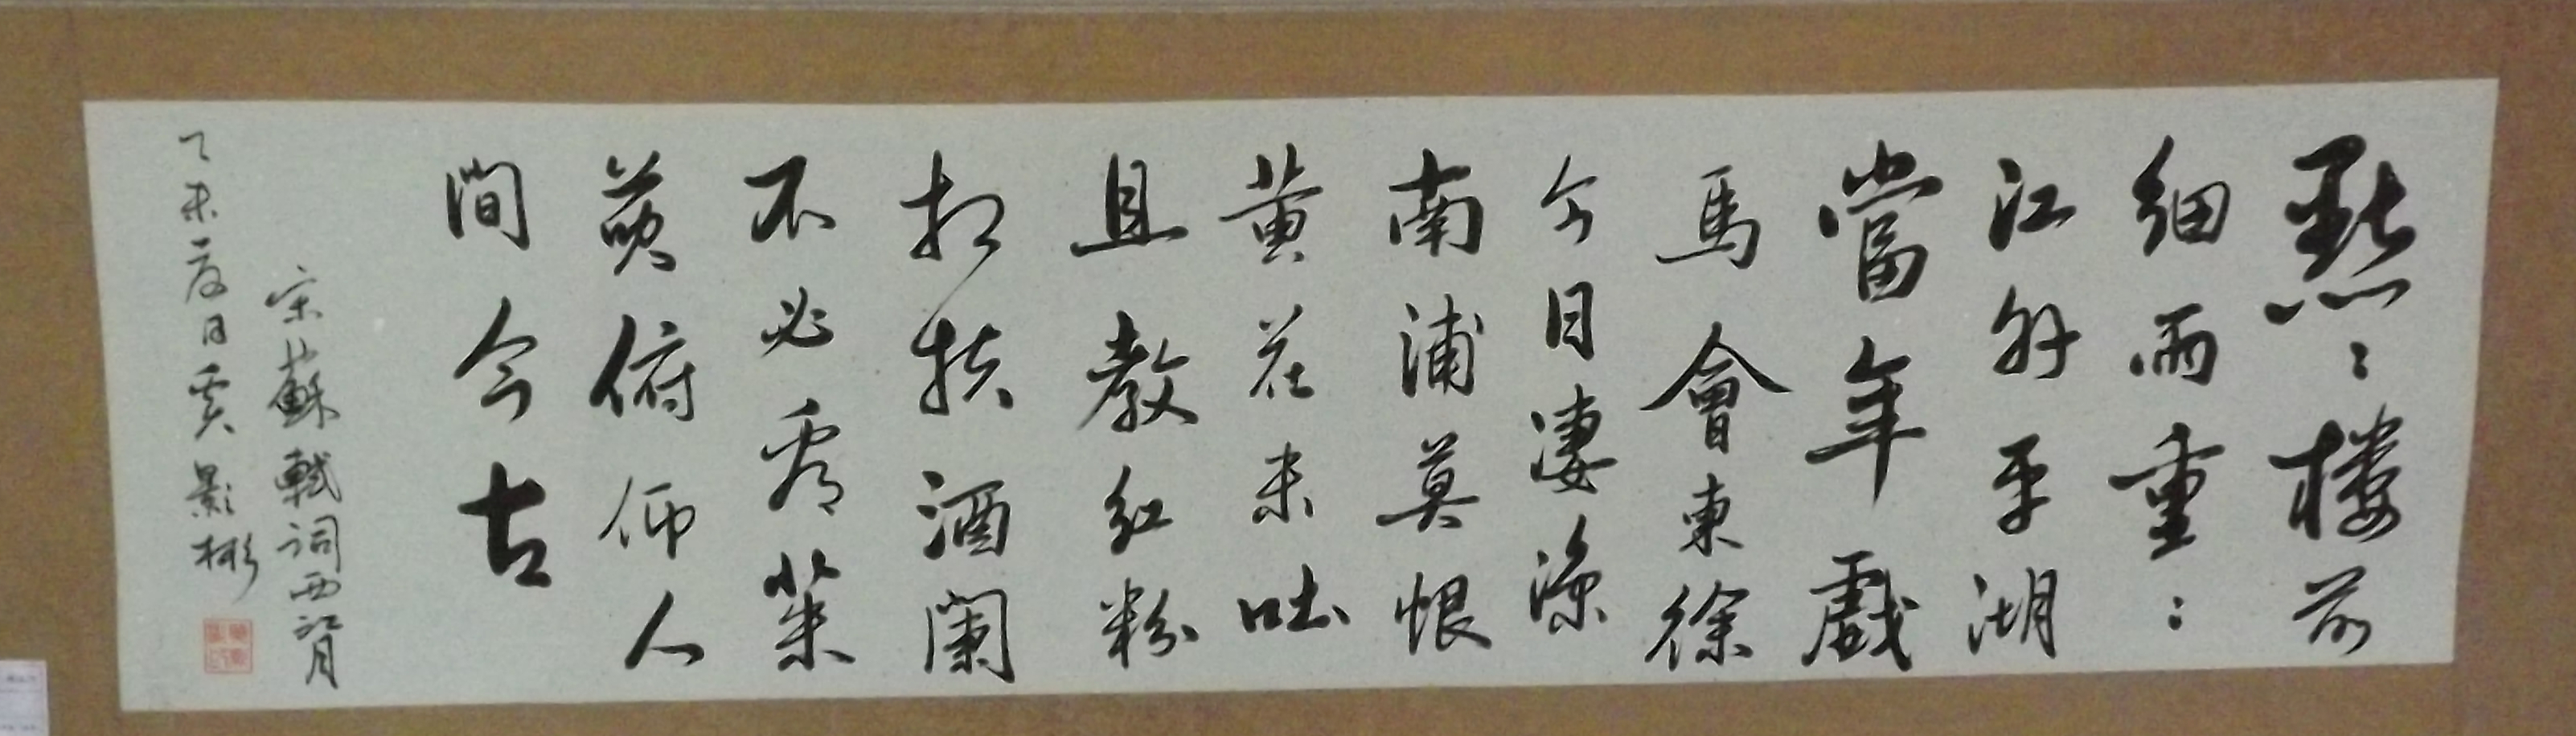 點〻楼前
細雨重〻
江外平湖
當年戲
馬會東徐
今日凄涼
南浦莫恨
黄花未吐
且教紅粉
相扶酒闌
不必看茱
萸俯仰人
間今古
宋蘇軾詞西江月
丁未夏日賈影彬